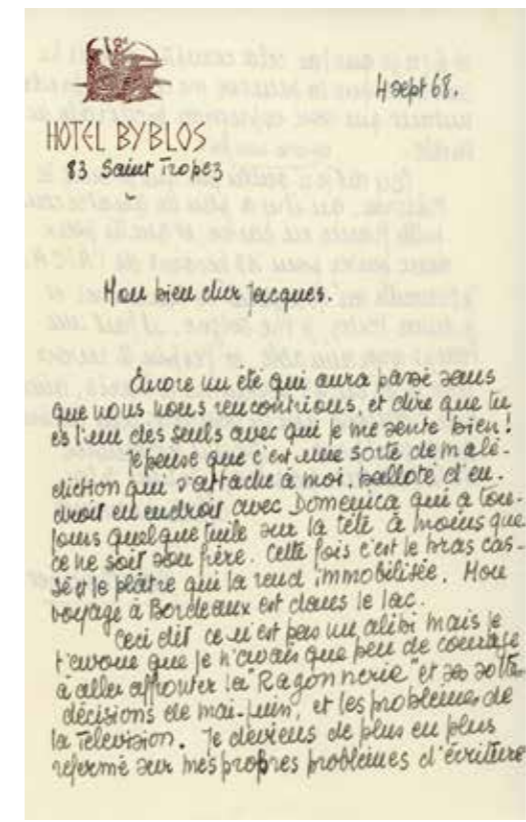 4 sept 68.
HOTEL BYBLOS
83 Saint Tropez
Mon bien cher Jacques.
Encore un été qui aura passé sans
que nous nous rencontrions, et dire que tu
es l'un des seuls avec qui je me sente bien !
Je pense que c'est une sorte de malé-
diction qui s'attache à moi, balloté d'en-
droit en endroit avec Domenica qui a tou-
jours quelque tuile sur la tête à moins que
ce ne soit son frère. Cette fois c'est le bras cas-
sé et le plâtre qui la rend immobilisée. Mon
voyage à Bordeaux est dans le lac.
Ceci dit ce n'est pas un alibi mais je
t'avoue que je n'avais que peu de courage
à aller affronter la "Ragonnerie" et ses
décisions de mai-juin, et les problèmes de
la Télévision. Je deviens de plus en plus
refermé sur mes propres problèmes d'écriture